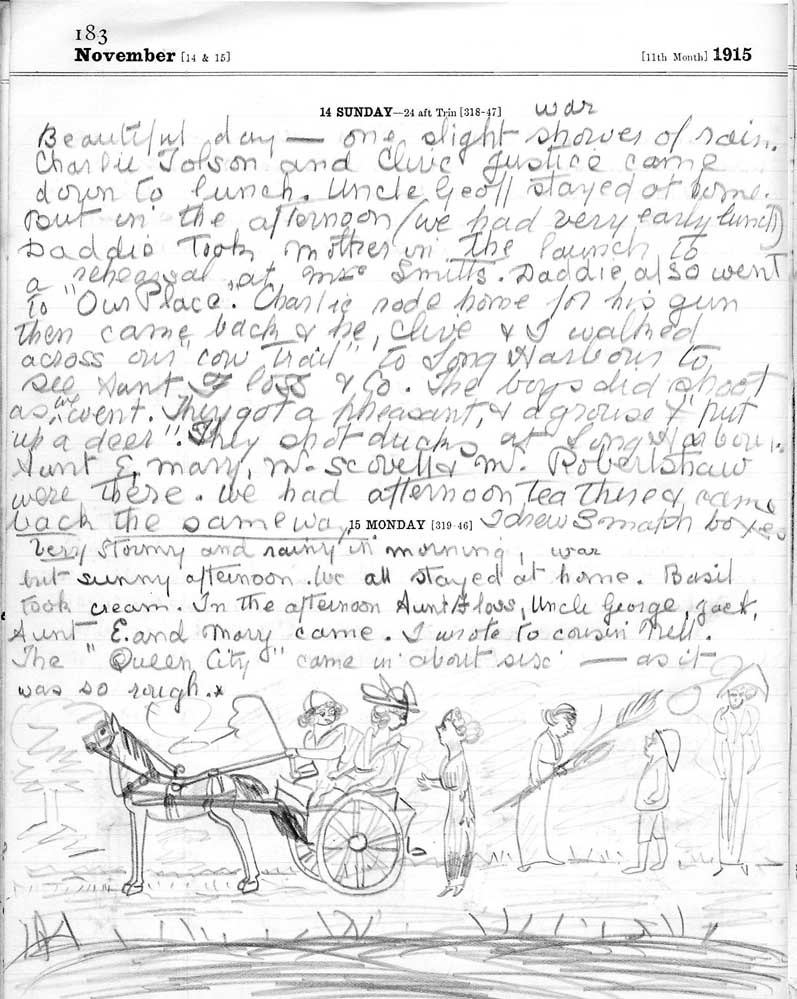 183
November [14 & 15] [11th Month] 1915
14 SUNDAY—24 aft Trin [318-47] war
Beautiful day — one slight shower of rain.
Charlie Tolson and Clive Justice came
down to lunch. Uncle Geoff stayed at home.
But in the afternoon (we had very early lunch)
Daddie took mother in the launch to
a rehearsal at Mrs Smitts. Daddie also went
to "Our Place. Charlie rode home for his gun
then came back & he, Clive & I walked
across our "cow trail" to Long Harbour to
see Aunt Floss & Co. The boys did shoot
as we went. They got a pheasant, & a grouse & "put
up a deer". They shot ducks at Long Harbour.
Aunt E, Mary, M. Scovell & M. Robertshaw
were there. We had afternoon tea there & came
back the same way. I drew 3 match boxes
15 MONDAY [319-46]
Very stormy and rainy in morning, war
but sunny afternoon. We all stayed at home. Basil
took cream. In the afternoon Aunt Floss, Uncle George, Jack,
Aunt E. and Mary came. I wrote to cousin Nell.
The "Queen City" came in about six — as it
was so rough.*